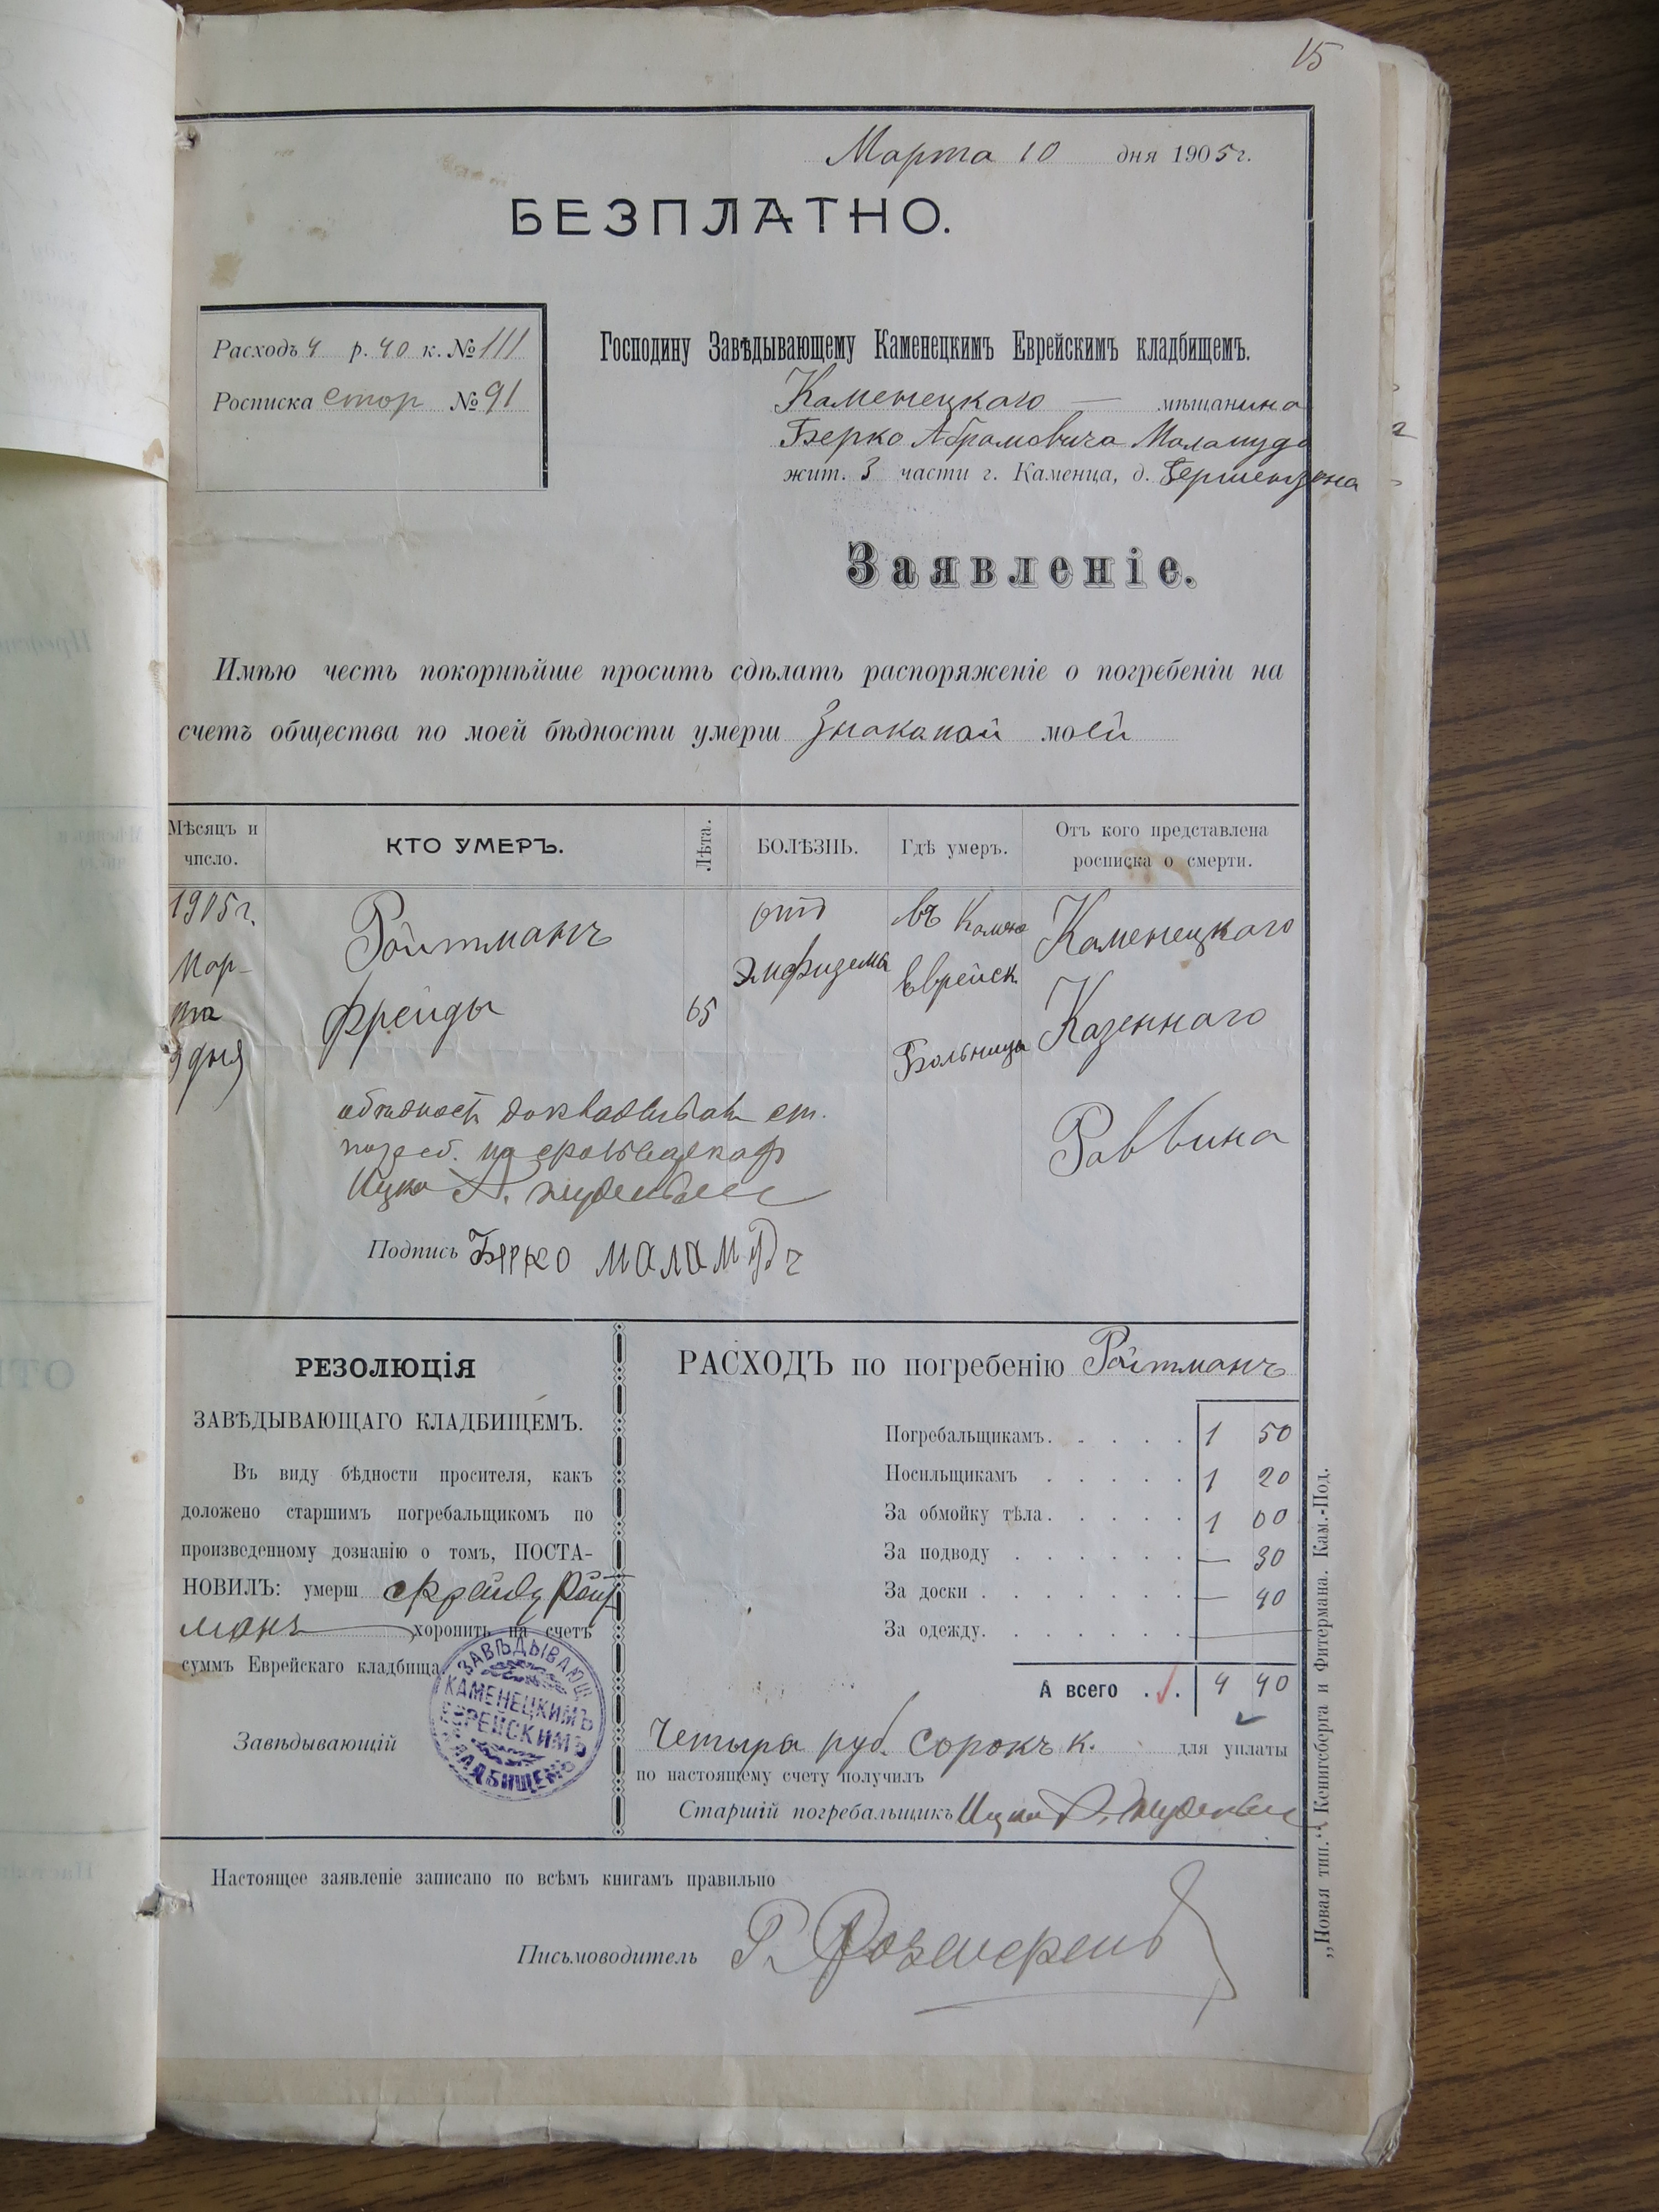 15
Марта 10 дня 1905 г.
БЕЗПЛАТНО.
Расходъ 4 р. 40 к. № 111
Росписка стор № 91
Господину Завѣдывающему Каменецкимъ Еврейскимъ кладбищемъ.
Каменецкаго — мѣщанина
Берко Абрамовича Маламуда
жит. 3 части г. Каменца, д. Гершензона
Заявленіе.
Имѣю честь покорнѣйше просить сдѣлать распоряженіе о погребеніи на
счетъ общества по моей бѣдности умерш знакамой моей
Мѣсяцъ и число.
КТО УМЕРЪ.
Лѣта.
БОЛѢЗНЬ.
Гдѣ умеръ.
Отъ кого представлена росписка о смерти.
1905 г. Мар-та 9 дня
Ройтманъ Фрейды
65
отъ Эмфизема
въ Камен Еврейск Больницы
Каменецкаго Казеннаго Раввина
Ицко А.
Подпись Берко Маламудъ
РЕЗОЛЮЦІЯ
ЗАВѢДЫВАЮЩАГО КЛАДБИЩЕМЪ.
Въ виду бѣдности просителя, какъ
доложено старшимъ погребальщикомъ по
произведенному дознанію о томъ, ПОСТА-
НОВИЛЪ: умерш Фрейду Ройт
манъ хоронить на счетъ
суммъ Еврейскаго кладбища.
Завѣдывающій
ЗАВѢДЫВАЮЩ.
КАМЕНЕЦКИМЪ
ЕВРЕЙСКИМЪ
КЛАДБИЩЕМЪ
РАСХОДЪ по погребенію Ройтманъ
Погребальщикамъ. . . . . 1 50
Носильщикамъ . . . . . 1 20
За обмойку тѣла. . . . . 1 00
За подводу . . . . . . — 30
За доски . . . . . . . — 40
За одежду. . . . . . . —
А всего . . 4 40
Четыра руб. сорокъ к. для уплаты
по настоящему счету получилъ
Старшій погребальщикъ Ицко А.
Настоящее заявленіе записано по всѣмъ книгамъ правильно
Письмоводитель Р.
„Новая тип.“ А Кенигсберга и Фитермана. Кам.-Под.